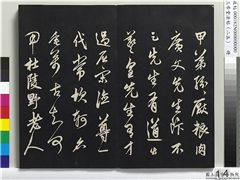 甲第紛〻厭粱肉
廣文先生飯不
足先生有道出
羲皇先生有才
過屈宋德尊一
代常坎軻名
垂萬古知何
用杜陵野老人
14